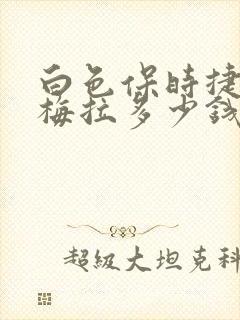 白色保时捷
梅拉多少钱
超級大坦克科